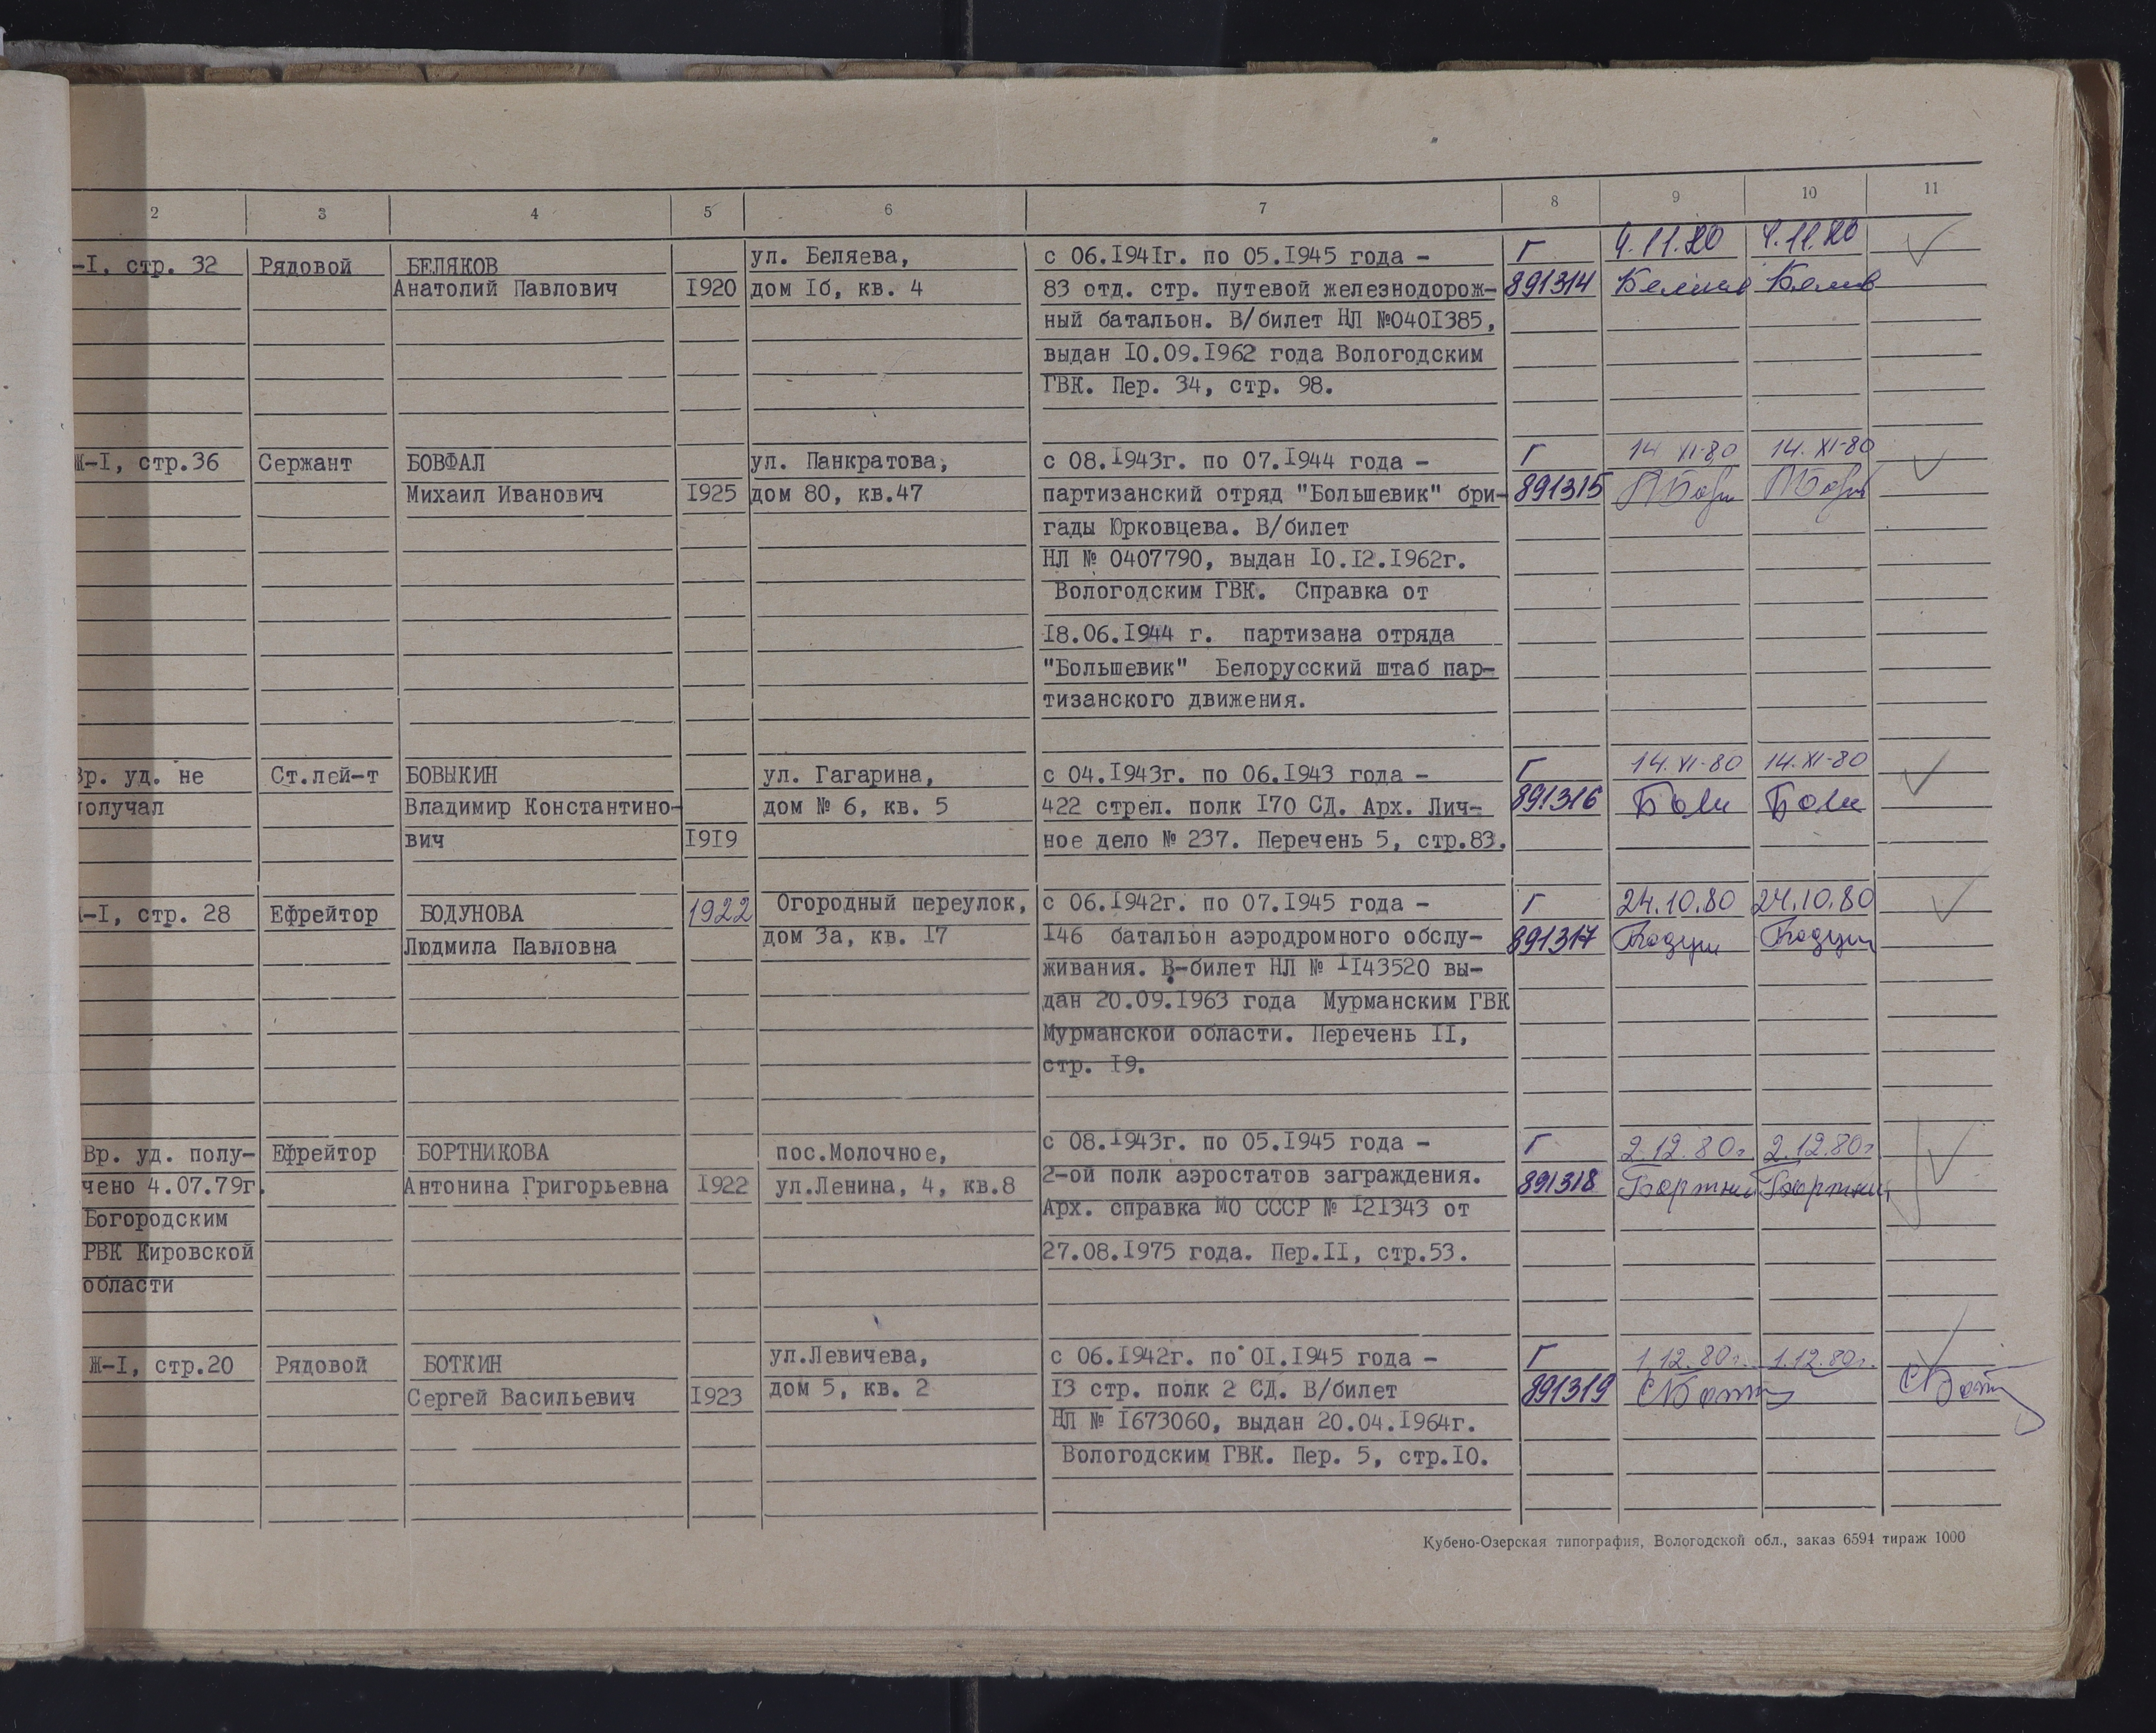 2 3 4 5 6 7 8 9 10 11
-I, стр. 32 Рядовой БЕЛЯКОВ
Анатолий Павлович I920
ул. Беляева,
дом Iб, кв. 4
с 06.I94Iг. по 05.I945 года -
83 отд. стр. путевой железнодорож-
ный батальон. В/билет НЛ №040I385,
выдан I0.09.I962 года Вологодским
ГВК. Пер. 34, стр. 98.
Г
891314
4.11.80 4.11.80
Ж-I, стр.36 Сержант БОВФАЛ
Михаил Иванович I925
ул. Панкратова,
дом 80, кв.47
с 08.I943г. по 07.I944 года -
партизанский отряд "Большевик" бри-
гады Юрковцева. В/билет
НЛ № 0407790, выдан I0.I2.I962г.
Вологодским ГВК. Справка от
I8.06.I944 г. партизана отряда
"Большевик" Белорусский штаб пар-
тизанского движения.
Г
891315
14 XI-80 14. XI-80
Вр. уд. не
получал
Ст.лей-т БОВЫКИН
Владимир Константино-
вич I9I9
ул. Гагарина,
дом № 6, кв. 5
с 04.I943г. по 06.I943 года -
422 стрел. полк I70 СД. Арх. Лич-
ное дело № 237. Перечень 5, стр.83.
Г
891316
14. XI-80 14. XI-80
-I, стр. 28 Ефрейтор БОДУНОВА
Людмила Павловна 1922
Огородный переулок,
дом 3а, кв. I7
с 06.I942г. по 07.I945 года -
I46 батальон аэродромного обслу-
живания. В-билет НЛ № II43520 вы-
дан 20.09.I963 года Мурманским ГВК
Мурманской области. Перечень II,
стр. I9.
Г
891317
24.10.80 24.10.80
Вр. уд. полу-
чено 4.07.79г.
Богородским
РВК Кировской
области
Ефрейтор БОРТНИКОВА
Антонина Григорьевна I922
пос.Молочное,
ул.Ленина, 4, кв.8
с 08.I943г. по 05.I945 года -
2-ой полк аэростатов заграждения.
Арх. справка МО СССР № I2I343 от
27.08.I975 года. Пер.II, стр.53.
Г
891318
2.12.80г. 2.12.80г
Ж-I, стр.20 Рядовой БОТКИН
Сергей Васильевич I923
ул.Левичева,
дом 5, кв. 2
с 06.I942г. по 0I.I945 года -
I3 стр. полк 2 СД. В/билет
НЛ № I673060, выдан 20.04.I964г.
Вологодским ГВК. Пер. 5, стр.I0.
Г
891319
1.12.80г. 1.12.80г.
Кубено-Озерская типография, Вологодской обл., заказ 6594 тираж 1000